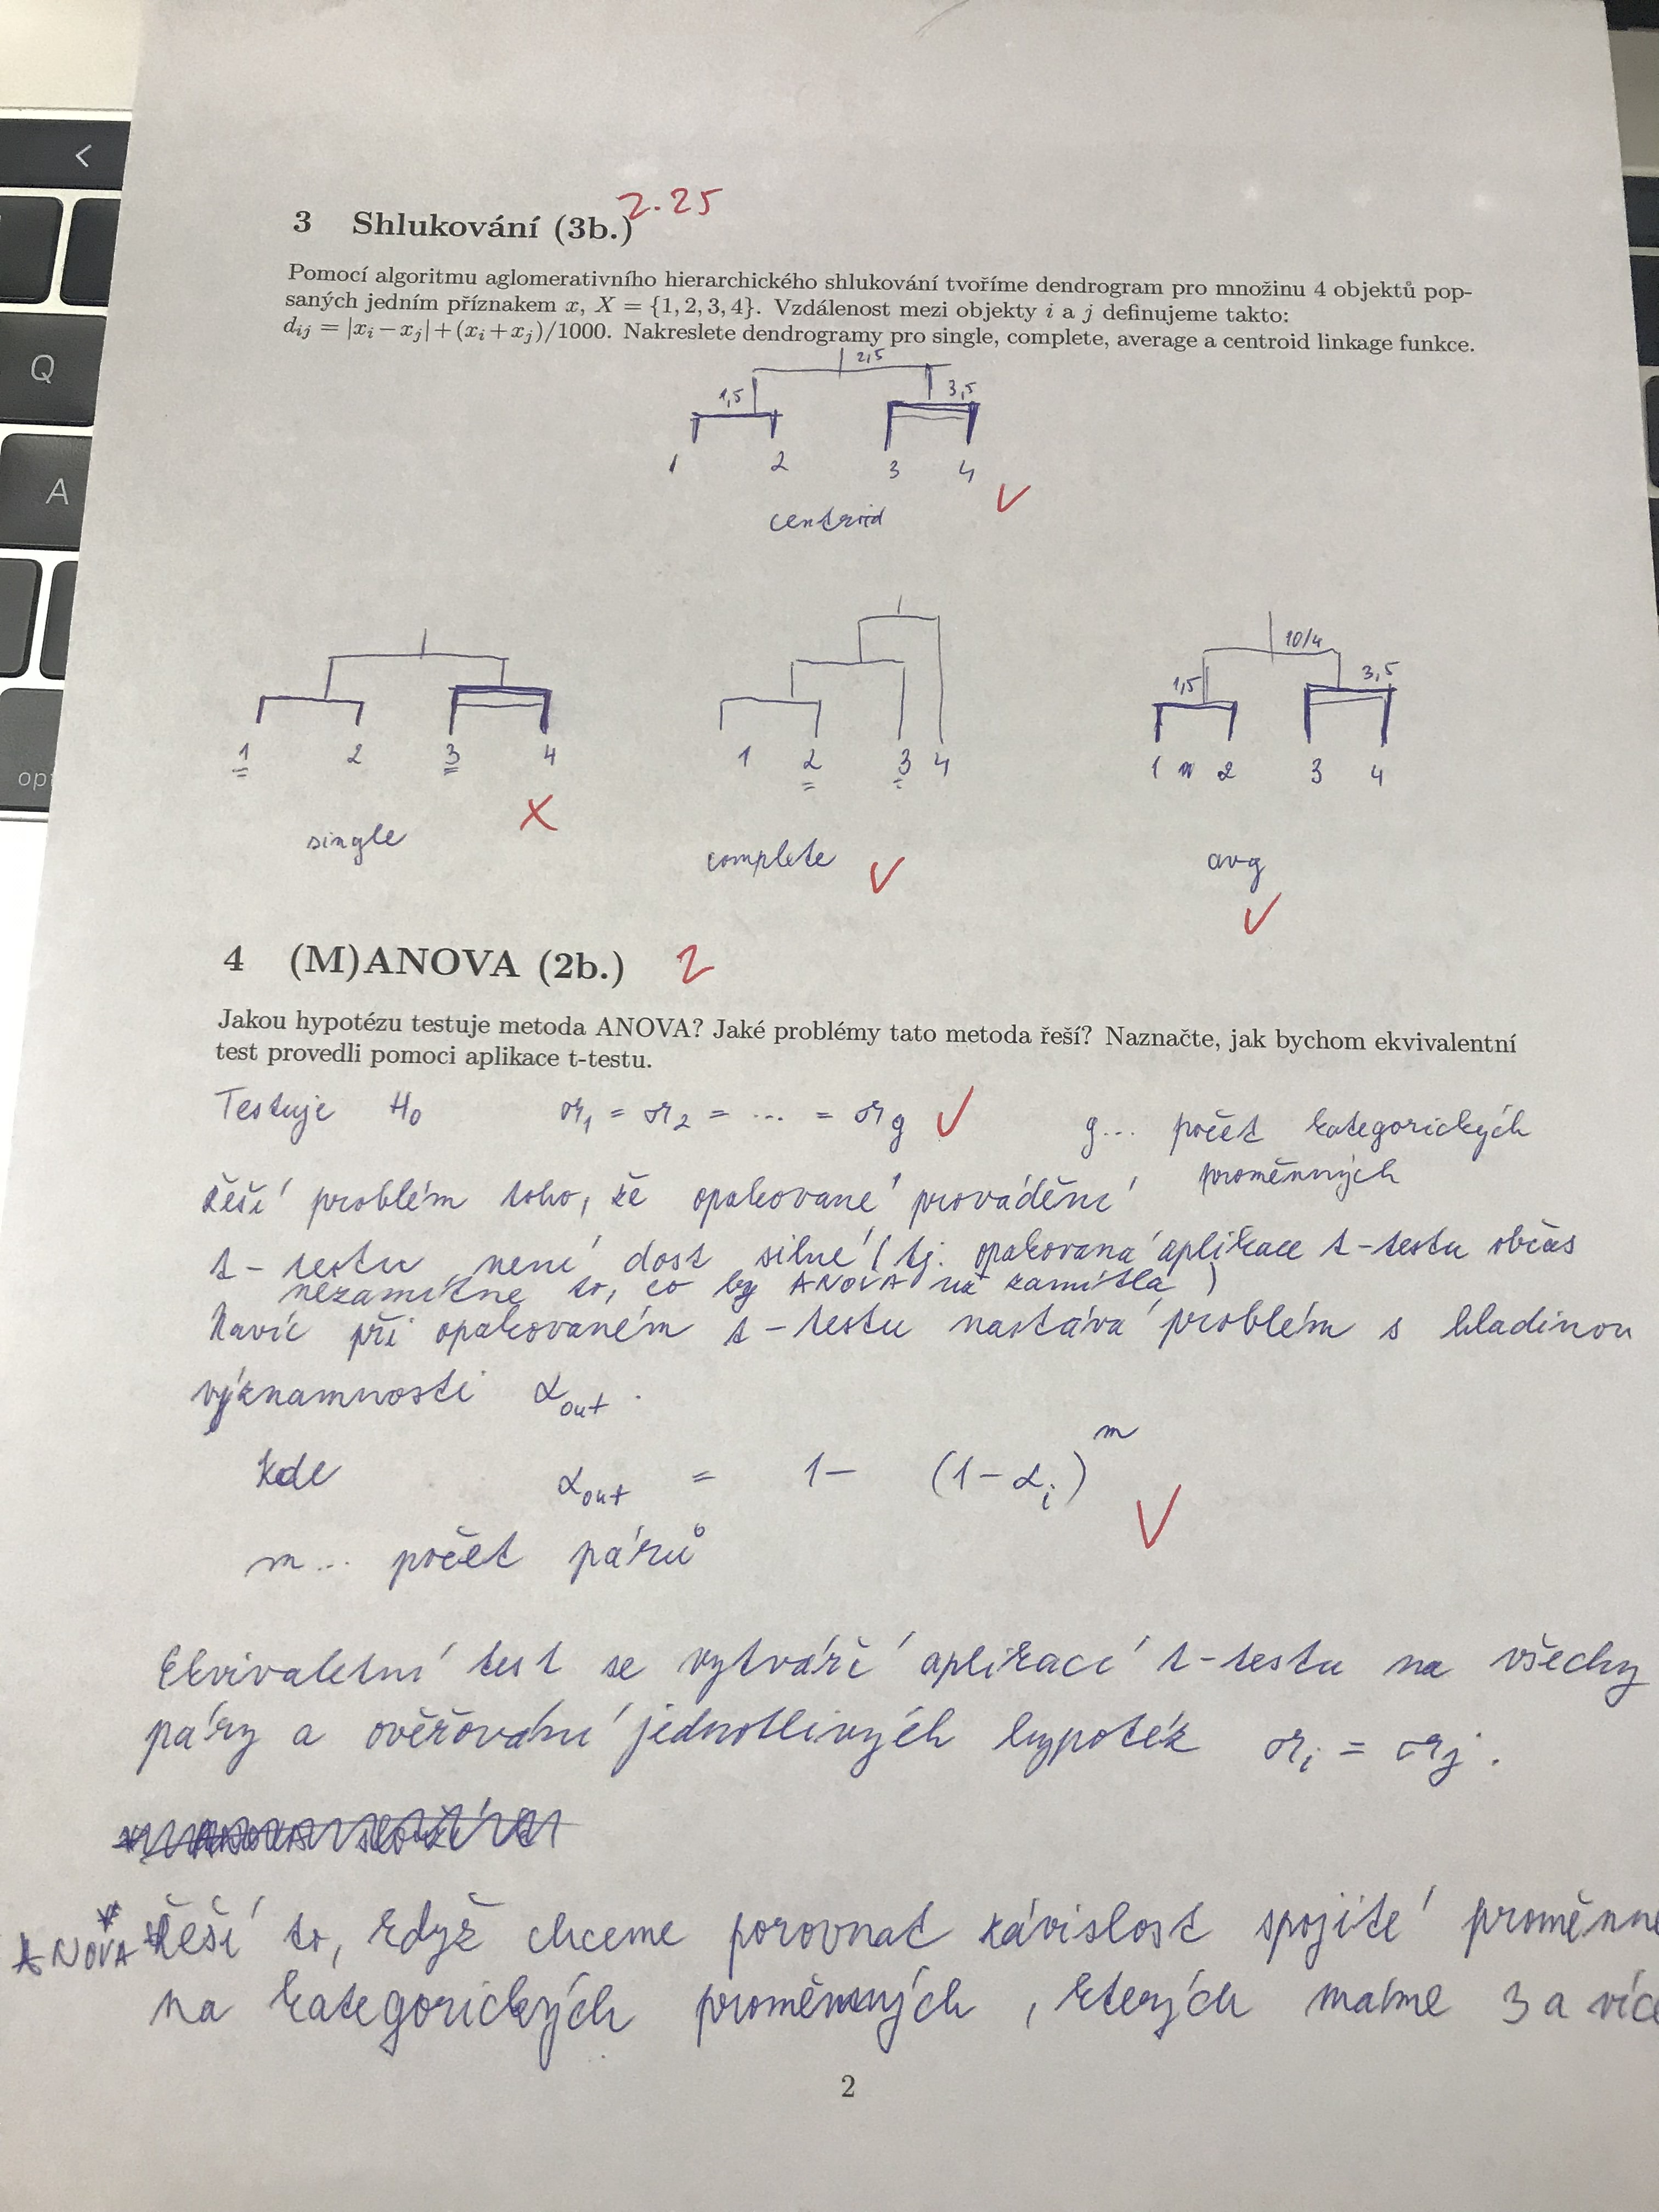 <
Q
A
opt
3 Shlukování (3b.) 2.25
Pomocí algoritmu aglomerativního hierarchického shlukování tvoříme dendrogram pro množinu 4 objektů pop-
saných jedním příznakem x, X = {1, 2, 3, 4}. Vzdálenost mezi objekty i a j definujeme takto:
dij = |xi − xj| + (xi + xj)/1000. Nakreslete dendrogramy pro single, complete, average a centroid linkage funkce.
2,5
1,5 3,5
1 2 3 4
centroid
10/4
1,5 3,5
1 2 3 4
1 2 3 4
1 2 3 4
single
complete
avg
4 (M)ANOVA (2b.) 2
Jakou hypotézu testuje metoda ANOVA? Jaké problémy tato metoda řeší? Naznačte, jak bychom ekvivalentní
test provedli pomoci aplikace t-testu.
Testuje H0
g... počet kategorických
proměnných
řeší problém toho, že opakované provádění
t-testu není dost silné (tj. opakovaná aplikace t-testu občas
nezamítne to, co by ANOVA už zamítla)
Navíc při opakovaném t-testu nastává problém s hladinou
významnosti αout.
kde αout = 1 - (1 - αi)^m
m... počet párů
Ekvivaletní test se vytváří aplikací t-testu na všechy
páry a ověřování jednotlivých hypotéz
ANOVA řeší to, když chceme porovnat závislost spojité proměnné
na kategorických proměnných, kterých máme 3 a více
2